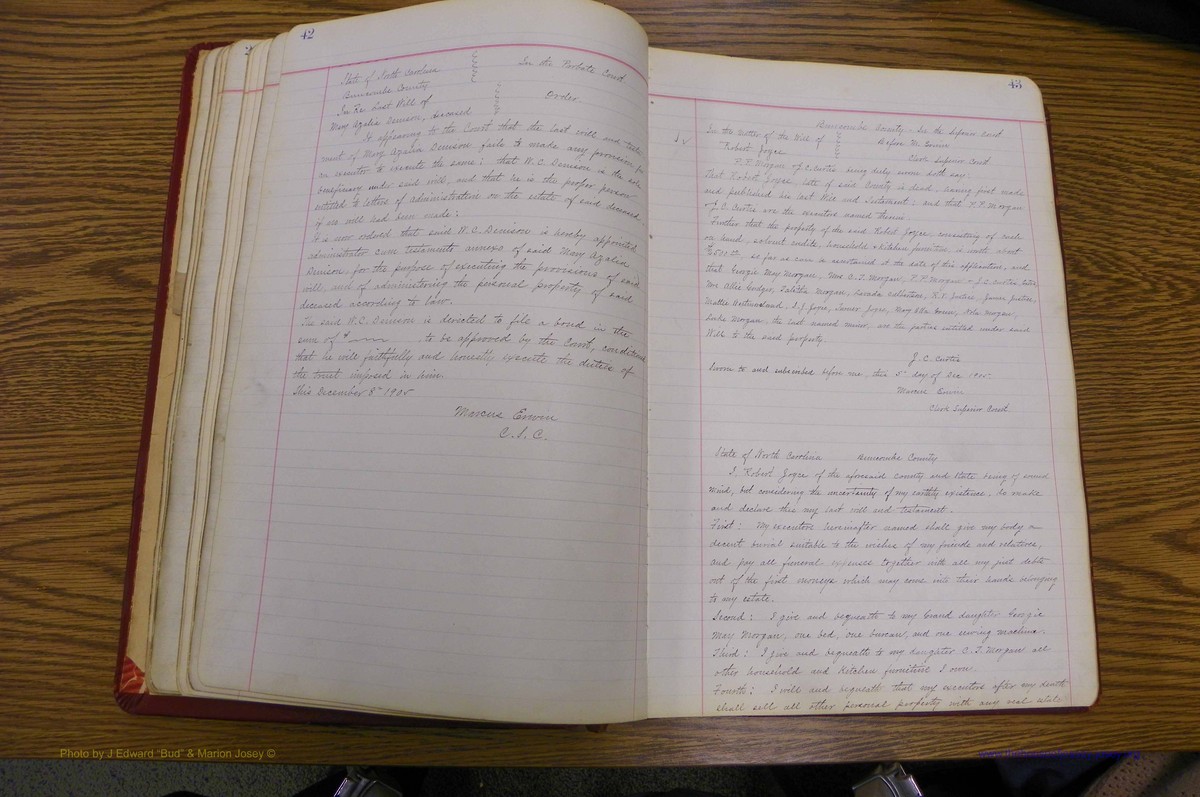 42
State of North Carolina
Buncombe County
In Re Last Will of
Mary Azalia Denison, deceased
In the Probate Court
Order
It appearing to the Court that the last will and testa-
ment of Mary Azalia Denison fails to made any provision for
an executor to execute the same; that W.C. Denison is the sole
beneficiary under said will, and that he is the proper person
entitled to letters of administration on the estate of said deceased
if no will had been made;
It is now ordered that said W.C. Denison is hereby appointed
administrator cum testamento annexo of said Mary Azalia
Denison, for the purpose of executing the provisions of said
will, and of administering the personal property of said
deceased according to law.
The said W.C. Denison is directed to file a bond in the
sum of $ to be approved by the Court, conditioned
that he will faithfully and honestly execute the duties of
the trust imposed in him.
This December 5th 1905
Marcus Erwin
C.S.C.
43
Buncombe County - In the Superior Court
In the Matter of the Will of
Robert Joyce
Before M. Erwin
Clerk Superior Court
P.P. Morgan & J.C. Curtis being duly sworn doth say:
That Robert Joyce, late of said County is dead, having first made
and published his last Will and Testament; and that P.P. Morgan
& J.C. Curtis are the executors named therein.
Further that the property of the said Robert Joyce, consisting of cash
on hand, solvent credits, household & kitchen furniture, is worth about
so far as can be ascertained at the date of this application, and
that Georgie May Morgan, Mrs C.T. Morgan, P.P. Morgan & J.C. Curtis
Mrs Allie Hodges, Talitha Morgan, James
Mattie S.J. Joyce, Joyce, Mary Etta Morgan,
Morgan, the last named minor, are the parties entitled under said
Will to the said property.
J.C. Curtis
Sworn to and subscribed before me, this 5th day of Dec 1905.
Marcus Erwin
Clerk Superior Court
State of North Carolina Buncombe County
I, Robert Joyce of the aforesaid county and State being of sound
mind, but considering the uncertainty of my earthly existence, do make
and declare this my last will and testament.
First: My executors hereinafter named shall give my body a
decent burial suitable to the wishes of my friends and relatives,
and pay all funeral expenses together with all my just debts
out of the first moneys which may come into their hands belonging
to my estate.
Second: I give and bequeath to my Grand daughter Georgie
May Morgan, one bed, one bureau, and one sewing machine.
Third: I give and bequeath to my daughter C.T. Morgan all
other household and Kitchen furniture I own.
Fourth: I will and bequeath that my executors after my death
shall sell all other personal property with any real estate
Photo by J Edward "Bud" & Marion Josey ©